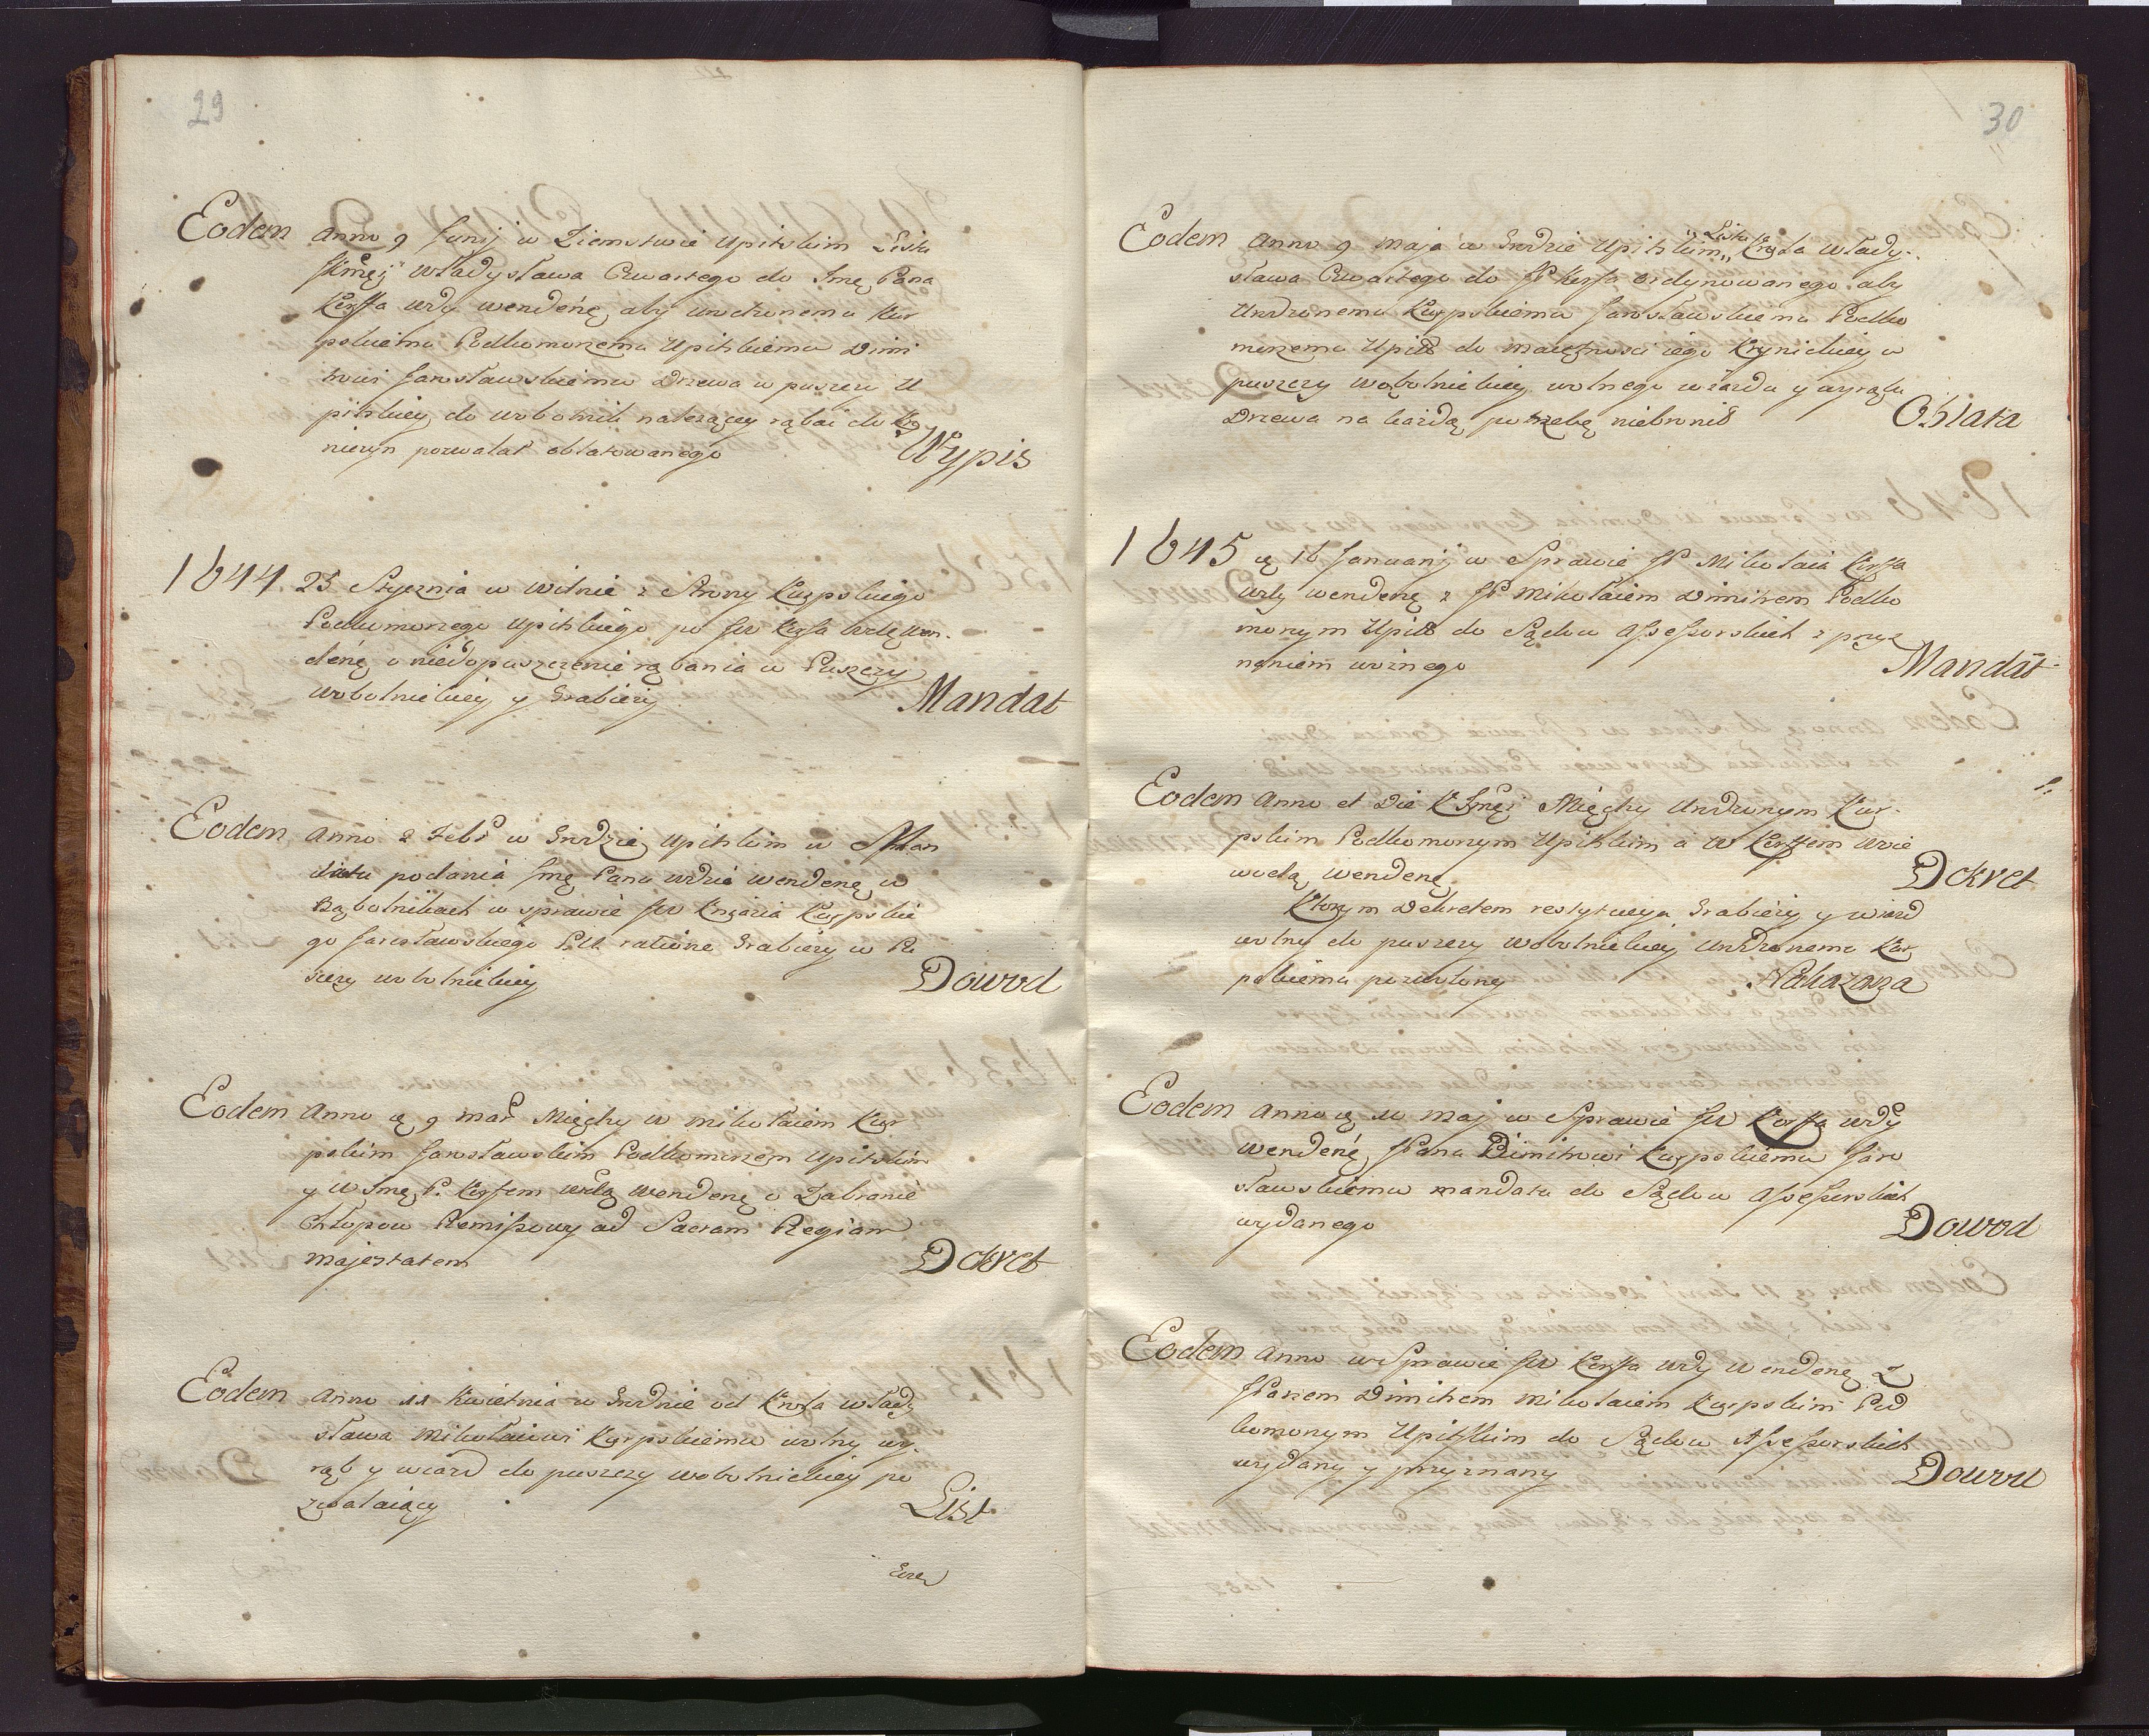 29
Eodem Anno 9 Junij w Ziemstwie Upitskim Listu
JKmęj Władysława Czwartego do Jmę Pana
Korffa wdy wendeńę aby Urodzonemu Kur
pskiemu Podkomorzemu Upitskiemu Dimi
trowi Jarosławskiemu Drzewa w puszczy U
pitskiey do wobolnik należącey rąbać do Kry
niczyn pozwalał oblatowanego
Wypis
1644 25 Stycznia w Wilnie z Strony Kurpskiego
Podkomorzego Upitskiego po JW Korfa Wdę Wen-
deńę o niedopuszczenie rąbania w Puszczy
wobolnickiey y Grabieży
Mandat
Eodem Anno 2 Febr w Grodzie Upitskim w Man
datu podania Jmę Panu wdzie wendenę w
Bąbolnikach w sprawie JW Knzazia Kurpskie
go Jarosławskiego P. U. ratione Grabieży w Pu
szczy wobolnickiey
Dowod
Eodem Anno ę 9 mar Między W mikołaiem Kur
pskim Jarosławskim Podkomorzem Upitskim
y W Jmę P. Korfem Wdą Wendenę o Zabranie
Chłopow Remissowy ad Sacram Regiam
majestatem
Dekret
Eodem Anno 11 Kwietnia w Grodnie od Krola włady
sława Mikołaiowi Kurpskiemu wolny wy-
rąb y wiazd do puszczy wobolnickiey po
zwalaiący
List
30
Eodem Anno 9 Maja w Grodzie Upitskim „Listu” Krola Włady-
sława Czwartego do JP Korfa ordynowanego aby
Urodzonemu Kurpskiemu Jarosławskiemu Podko
morzemu Upitt do maiętnosci iego Krynickiey w
puszczy wobolnickiey wolnego wiazdu y wyrąbu
Drzewa na każdą potrzebę niebronił
Oblata
1645 ę 16 Januarij w Sprawie JP Mikołaia Korfa
Wdy wendenę z JP mikołaiem Dimitrem Podko
morzym Upitt do Sądow Assessorskich z przyz
naniem woźnego
Mandat
Eodem Anno et Die K Jmęi Między Urodzonym Kur-
pskim Podkomorzym Upitskim a W Korffem Woie
wodą Wendenę
Dekret
Ktorym Dekretem restytucya Grabieży y wiazd
wolny do puszczy wobolnickiey Urodzonemu Kur
pskiemu pozwolony
Nakazana
Eodem Anno ę 10 Maj w Sprawie JW Korffa wdy
Wendeńę JPanu Dimitrowi Kurpskiemu Jaro
sławskiemu mandatu do Sądow Assessorskich
wydanego
Dowod
Eodem Anno w Sprawie JW Korffa wdy Wendenę Z
JPanem Dimitrem Mikołaiem Kurpskim Pod
komorzym Upitskim do Sądow Assessorskich
wydany y przyznany
Dowod